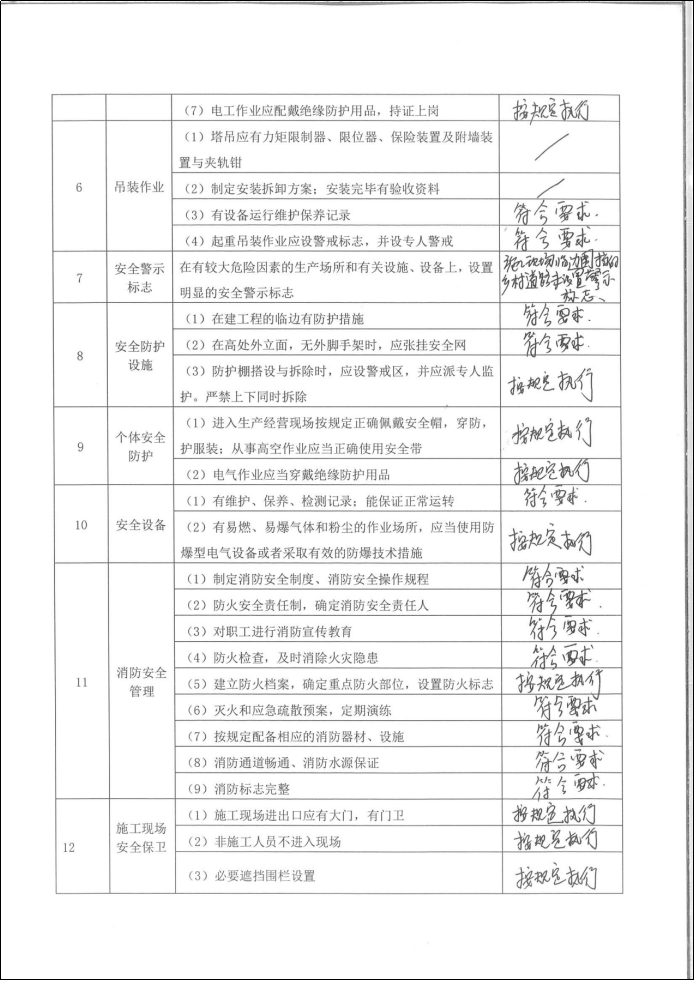 (7)电工作业应配戴绝缘防护用品，持证上岗 按规定执行
6 吊装作业
(1)塔吊应有力矩限制器、限位器、保险装置及附墙装
置与夹轨钳
(2)制定安装拆卸方案；安装完毕有验收资料
(3)有设备运行维护保养记录 符合要求.
(4)起重吊装作业应设警戒标志，并设专人警戒 符合要求.
7 安全警示
标志
在有较大危险因素的生产场所和有关设施、设备上，设置
明显的安全警示标志
乡村道路未设置警示
标志、
8 安全防护
设施
(1)在建工程的临边有防护措施 符合要求.
(2)在高处外立面，无外脚手架时，应张挂安全网 符合要求.
(3)防护棚搭设与拆除时，应设警戒区，并应派专人监
护。严禁上下同时拆除 按规定执行
9 个体安全
防护
(1)进入生产经营现场按规定正确佩戴安全帽，穿防，
护服装；从事高空作业应当正确使用安全带 按规定执行
(2)电气作业应当穿戴绝缘防护用品 按规定执行
10 安全设备
(1)有维护、保养、检测记录；能保证正常运转 符合要求.
(2)有易燃、易爆气体和粉尘的作业场所，应当使用防
爆型电气设备或者采取有效的防爆技术措施 按规定执行
11 消防安全
管理
(1)制定消防安全制度、消防安全操作规程 符合要求
(2)防火安全责任制，确定消防安全责任人 符合要求.
(3)对职工进行消防宣传教育 符合要求.
(4)防火检查，及时消除火灾隐患 符合要求.
(5)建立防火档案，确定重点防火部位，设置防火标志 按规定执行
(6)灭火和应急疏散预案，定期演练 符合要求
(7)按规定配备相应的消防器材、设施 符合要求.
(8)消防通道畅通、消防水源保证 符合要求
(9)消防标志完整 符合要求.
12 施工现场
安全保卫
(1)施工现场进出口应有大门，有门卫 按规定执行
(2)非施工人员不进入现场 按规定执行
(3)必要遮挡围栏设置 按规定执行